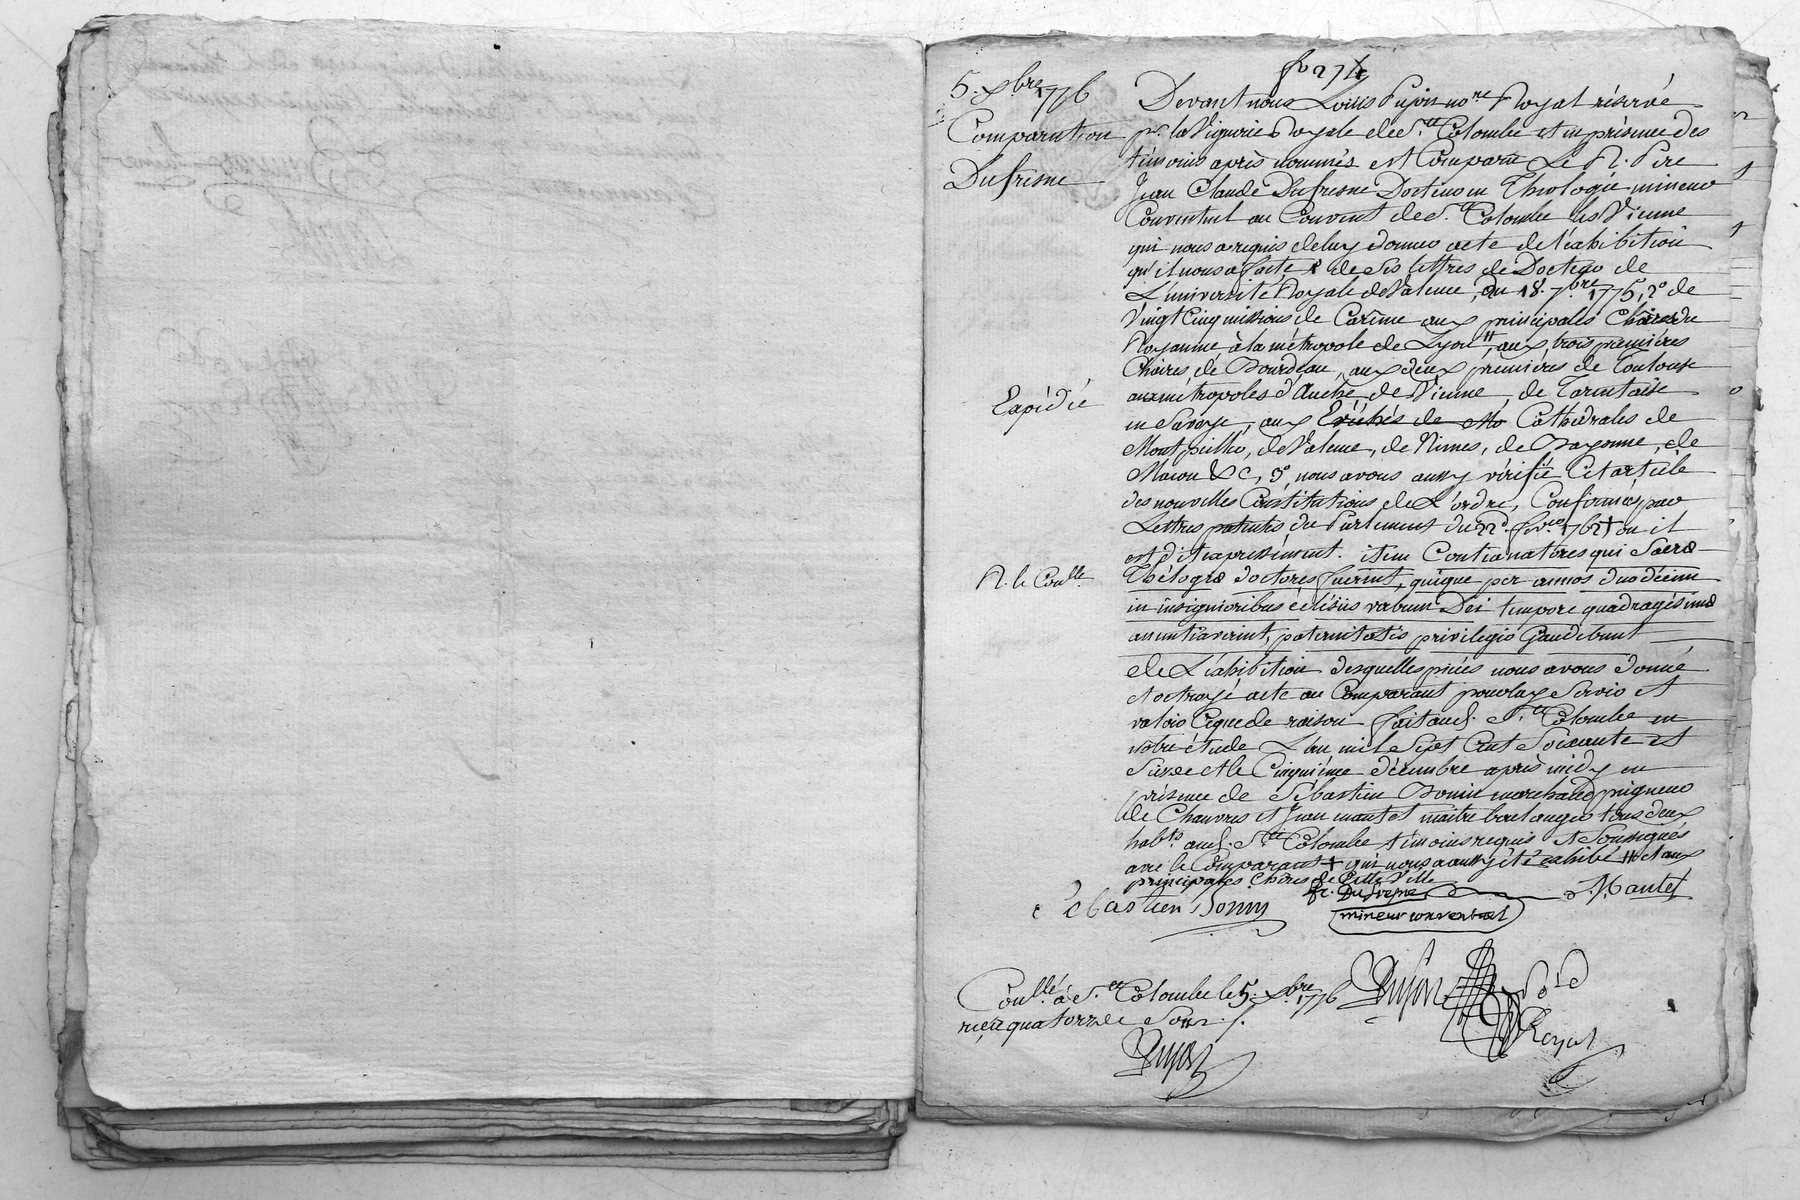 fo 274
5. xbre 1776
Comparution
Dufresne
Devant nous Louis Pujon nore Royal réservé
pr. la Viguerie Royale de Ste Colombe et en présence des
témoins après nommés est Comparu Le R. Pere
Jean Claude Dufresne Docteur en Théologie mineur
Conventuel au Couvent de Ste Colombe les Vienne
qui nous a requis de luy donner acte de l'exhibition
qu'il nous a faite 1° de ses lettres de Docteur de
L'université Royale de Valence, du 18. 7bre 1775, 2° de
Vingt Cinq missions de Carême aux principales Chaires du
Royaume à la métropole de Lyon #, aux trois premieres
Chaires de Bourdeau, aux deux premières de Toulouse
aux métropoles d'Auche, de Vienne, de Tarentaise
en Savoye, aux Evêchés de Mo Cathédrales de
Montpellier, de Valence, de Nimes, de Bayonne, de
Macon &c, 3° nous avons aussy vérifié Cet article
des nouvelles Constitutions de L'ordre, Confirmées par
Lettres patentes du Parlement du 22d. fvrer 1767 + ou il
est dit expressément. item Contionatores qui Sacræ
Théologiæ doctores fuerint, quique per annos duodécim
in insignioribus éclésiis vabum Dei tempore quadragésimæ
anuntiaverint, paternitatis privilegio Gaudebunt
de L'exhibition desquelles pièces nous avons donné
et octroyé acte au Comparant pour luy Servir et
valoir Ceque de raison fait aud. Ste Colombe en
notre étude L'an mil Sept Cent Soixante et
Seize et le Cinquième décembre après midy en
présence de Sébastien Bonin marchand peigneur
de Chanvres et Jean mantet maitre boulanger tous deux
habts. aud. Ste Colombe témoins requis et Soussignés
avec le Comparant + qui nous a aussy été exhibé # et aux
principales Chaires de Cette Ville
Expédié
R. le Coulle.
Sébastien Bonin
fr. Dufresne
mineur conventuel
J Mantet
Coullé. à Ste Colombe le 5. xbre 1776
reçu quatorze Sous ./.
Pujon
Pujon
Nore
Royal